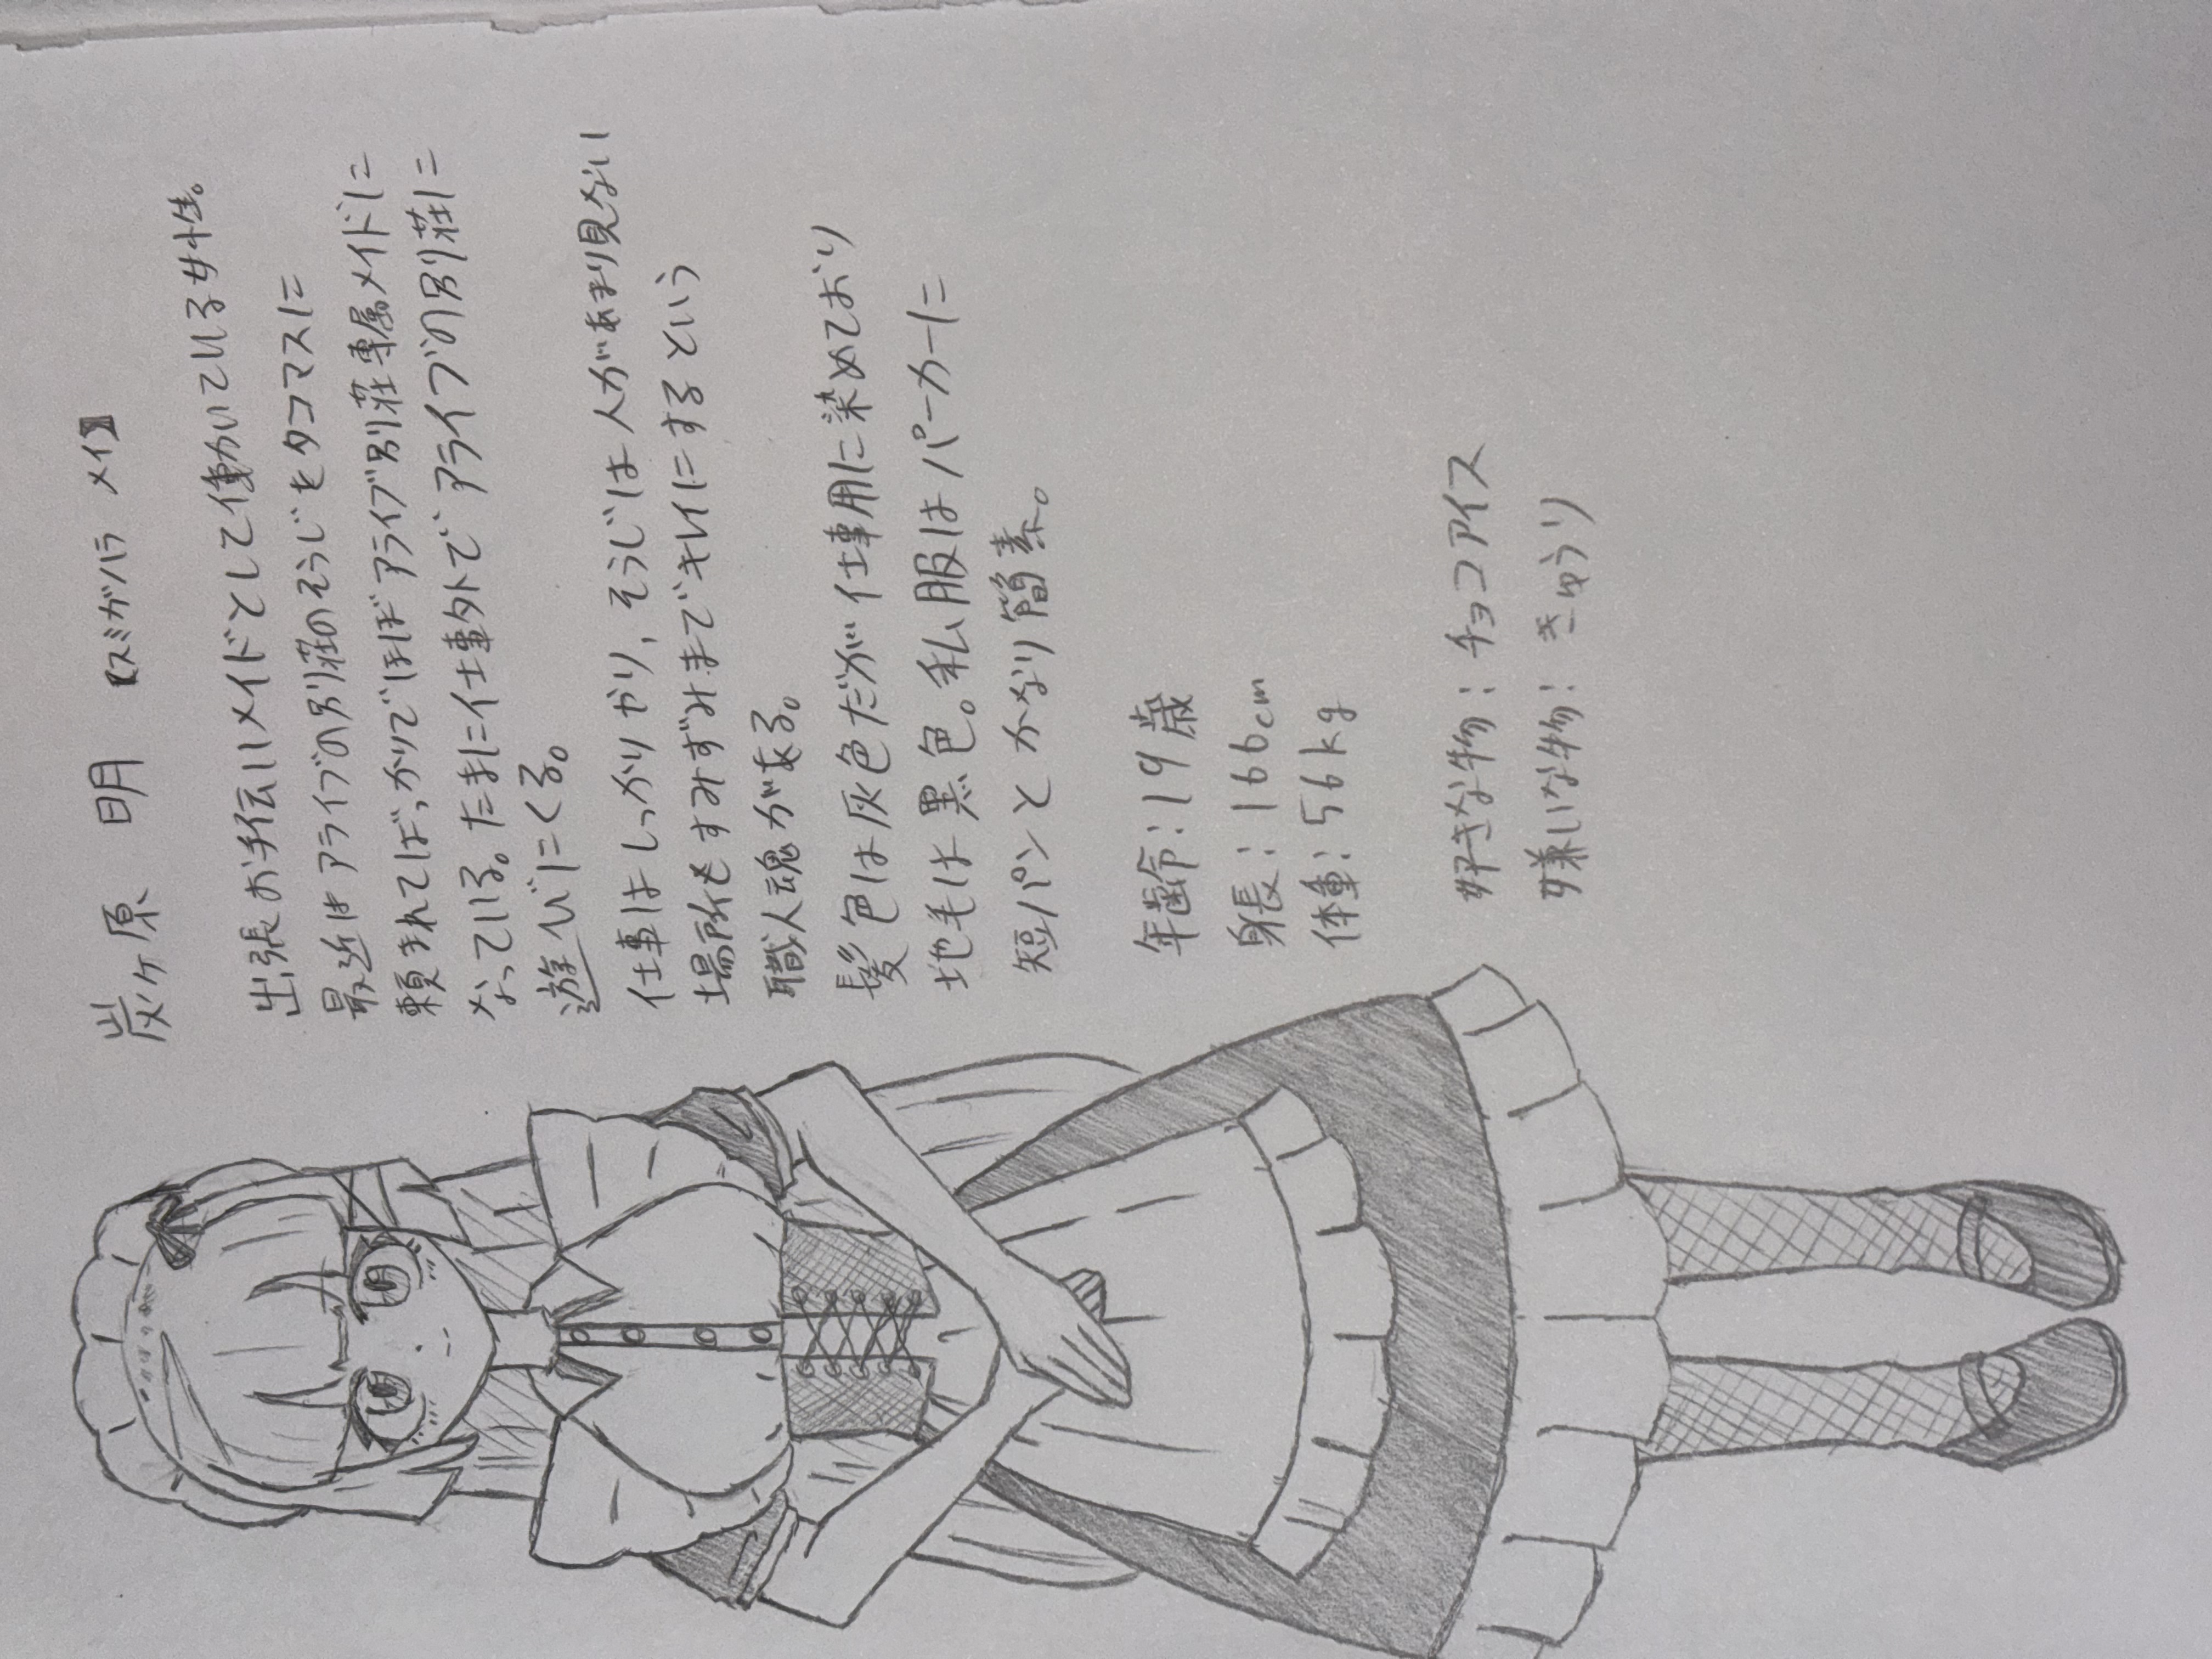 炭ヶ原 明 【スミガハラ メイ】
出張お手伝いメイドとして働いている女性。
最近はアライブの別荘のそうじをタコマスに
頼まれてばっかりでほぼアライブ別荘専属メイドに
なっている。たまに仕事外でアライブの別荘に
遊びにくる。
仕事はしっかりやり、そうじは人があまり見ない
場所もすみずみまでキレイにするという
職人魂がある。
髪色は灰色だが仕事用に染めており
地毛は黒色。私服はパーカーに
短パンとかなり簡素。
年齢:19歳
身長:166cm
体重:56kg
好きな物:チョコアイス
嫌いな物:きゅうり